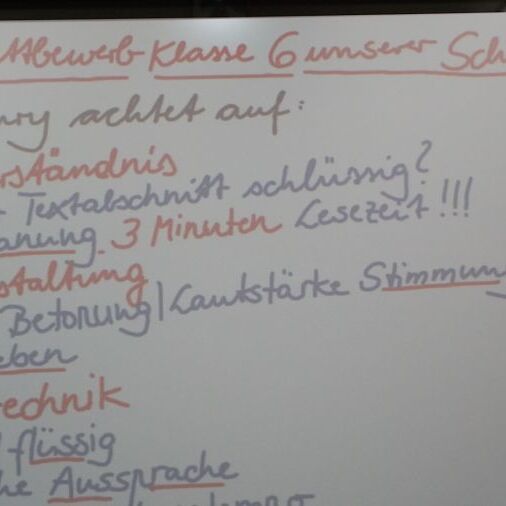 ttbewerb Klasse 6 unserer Sch
ury achtet auf:
rständnis
Textabschnitt schlüssig?
anung 3 Minuten Lesezeit!!!
staltung
Betonung/Lautstärke Stimmun
eben
technik
flüssig
he Aussprache